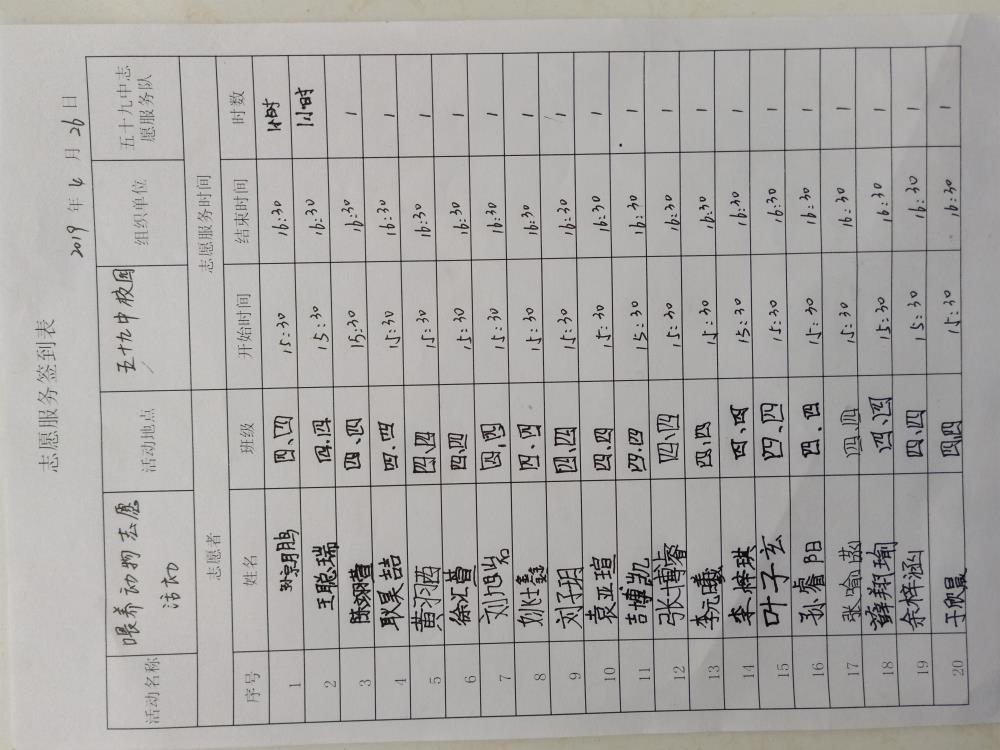 志愿服务签到表
2019 年 4 月 26 日
活动名称 喂养动物志愿活动 活动地点 五十九中校园 组织单位 五十九中志愿服务队
志愿者 志愿服务时间
序号 姓名 班级 开始时间 结束时间 时数
1 孙京鹏 四、四 15:30 16:30 1小时
2 王聪瑞 四.四 15:30 16:30 1小时
3 陈翊萱 四、四 15:30 16:30 1
4 耿昊喆 四.四 15:30 16:30 1
5 黄羽茜 四、四 15:30 16:30 1
6 徐汇曾 四、四 15:30 16:30 1
7 刘旭 四、四 15:30 16:30 1
8 姚仕鑫 四.四 15:30 16:30 1
9 刘子玥 四、四 15:30 16:30 1
10 袁亚瑄 四.四 15:30 16:30 1
11 吉博凯 四.四 15:30 16:30 1
12 张博睿 四、四 15:30 16:30 1
13 李元曦 四、四 15:30 16:30 1
14 李梓琪 四、四 15:30 16:30 1
15 叶子玄 四、四 15:30 16:30 1
16 孙睿阳 四.四 15:30 16:30 1
17 张喻涵 四.四 15:30 16:30 1
18 薛翔瑜 四、四 15:30 16:30 1
19 余梓涵 四.四 15:30 16:30 1
20 于欣晨 四四 15:30 16:30 1